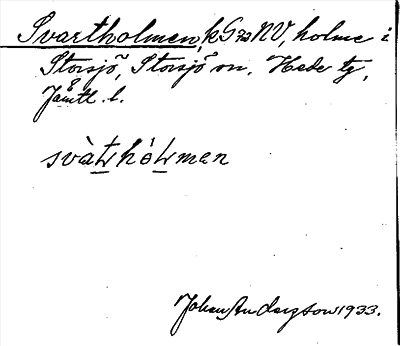 Svartholmen, k G 23 NV, holme i
Storsjö, Storsjö sn. Hede tg,
Jämtl. l.
svàthólmen
Johan Anderzson 1933.